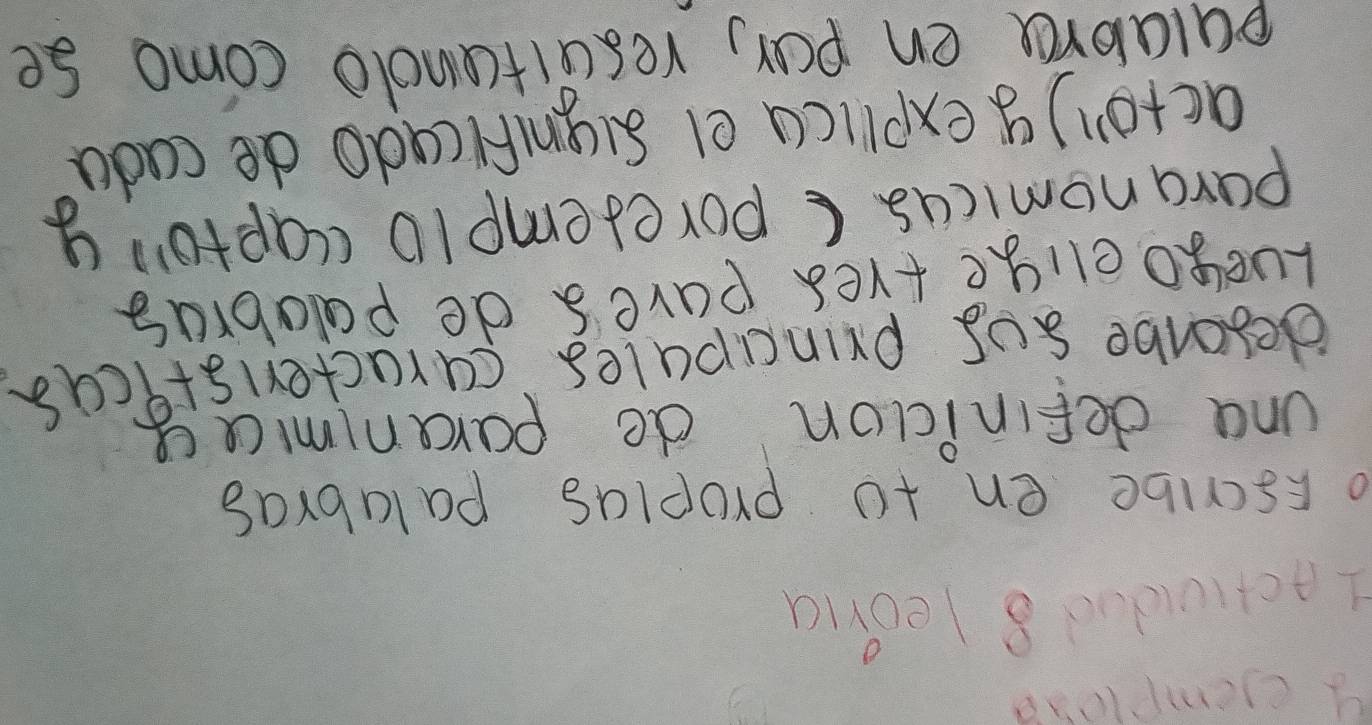 y ejemplosa
1 Actividad 8 leoria
• Escribe en tu propias palabras
una definicion de paranimia y
descrnbe sus principales caracteristicas.
Luego elige tres pares de palabras
paranomicas ( porejemplo "capto" y
acto") y explica el significado de cada
palabra en par, resaltando como se